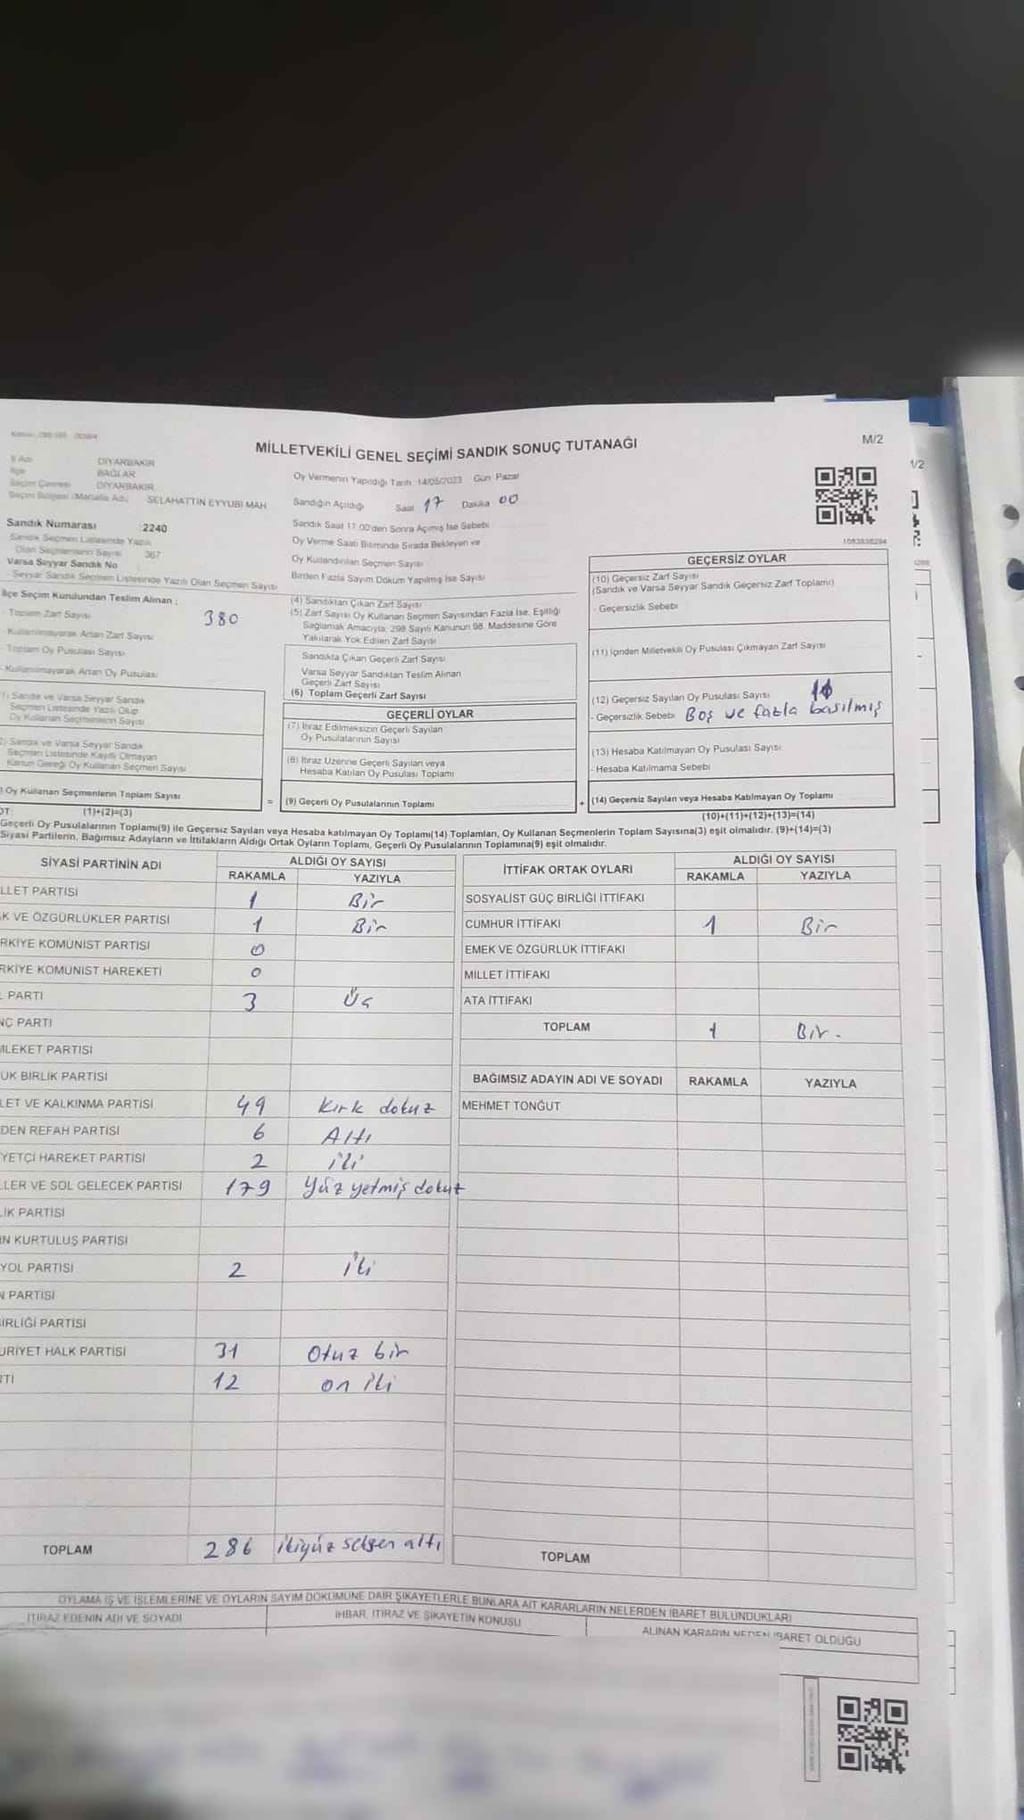 M/2
MİLLETVEKİLİ GENEL SEÇİMİ SANDIK SONUÇ TUTANAĞI
DİYARBAKIR
BAĞLAR
DİYARBAKIR
SELAHATTİN EYYUBİ MAH
Sandık Numarası 2240
Sandık Seçmen Listesinde Yazılı
Olan Seçmenlerin Sayısı 367
Varsa Seyyar Sandık No
Seyyar Sandık Seçmen Listesinde Yazılı Olan Seçmen Sayısı
İlçe Seçim Kurulundan Teslim Alınan :
Toplam Zarf Sayısı 380
Kullanılmayarak Artan Zarf Sayısı
Toplam Oy Pusulası Sayısı
Kullanılmayarak Artan Oy Pusulası
Sandık ve Varsa Seyyar Sandık
Seçmen Listesinde Yazılı Olup
Oy Kullanan Seçmenlerin Sayısı
Sandık ve Varsa Seyyar Sandık
Seçmen Listesinde Kayıtlı Olmayan
Kanun Gereği Oy Kullanan Seçmen Sayısı
Oy Kullanan Seçmenlerin Toplam Sayısı
(1)+(2)=(3)
Oy Vermenin Yapıldığı Tarih 14/05/2023 Gün Pazar
Sandığın Açıldığı Saat 17 Dakika 00
Sandık Saat 17:00'den Sonra Açılmış İse Sebebi
Oy Verme Saati Bitiminde Sırada Bekleyen ve
Oy Kullandırılan Seçmen Sayısı
Birden Fazla Sayım Döküm Yapılmış İse Sayısı
(4) Sandıktan Çıkan Zarf Sayısı
(5) Zarf Sayısı Oy Kullanan Seçmen Sayısından Fazla İse, Eşitliği
Sağlamak Amacıyla, 298 Sayılı Kanunun 98. Maddesine Göre
Yakılarak Yok Edilen Zarf Sayısı
Sandıkta Çıkan Geçerli Zarf Sayısı
Varsa Seyyar Sandıktan Teslim Alınan
Geçerli Zarf Sayısı
(6) Toplam Geçerli Zarf Sayısı
GEÇERLİ OYLAR
(7) İtiraz Edilmeksizin Geçerli Sayılan
Oy Pusulalarının Sayısı
(8) İtiraz Üzerine Geçerli Sayılan veya
Hesaba Katılan Oy Pusulası Toplamı
= (9) Geçerli Oy Pusulalarının Toplamı +
GEÇERSİZ OYLAR
(10) Geçersiz Zarf Sayısı
(Sandık ve Varsa Seyyar Sandık Geçersiz Zarf Toplamı)
- Geçersizlik Sebebi
(11) İçinden Milletvekili Oy Pusulası Çıkmayan Zarf Sayısı
(12) Geçersiz Sayılan Oy Pusulası Sayısı
- Geçersizlik Sebebi Boş ve fazla basılmış
(13) Hesaba Katılmayan Oy Pusulası Sayısı
- Hesaba Katılmama Sebebi
(14) Geçersiz Sayılan veya Hesaba Katılmayan Oy Toplamı
(10)+(11)+(12)+(13)=(14)
Geçerli Oy Pusulalarının Toplamı(9) ile Geçersiz Sayılan veya Hesaba katılmayan Oy Toplamı(14) Toplamları, Oy Kullanan Seçmenlerin Toplam Sayısına(3) eşit olmalıdır. (9)+(14)=(3)
Siyasi Partilerin, Bağımsız Adayların ve İttifakların Aldığı Ortak Oyların Toplamı, Geçerli Oy Pusulalarının Toplamına(9) eşit olmalıdır.
SİYASİ PARTİNİN ADI ALDIĞI OY SAYISI
RAKAMLA YAZIYLA
LLET PARTİSİ 1 Bir
K VE ÖZGÜRLÜKLER PARTİSİ 1 Bir
RKİYE KOMÜNİST PARTİSİ 0
RKİYE KOMÜNİST HAREKETİ 0
PARTİ 3 Üç
NÇ PARTİ
MLEKET PARTİSİ
ÜK BİRLİK PARTİSİ
LET VE KALKINMA PARTİSİ 49 Kırk dokuz
DEN REFAH PARTİSİ 6 Altı
YETÇİ HAREKET PARTİSİ 2 iki
LLER VE SOL GELECEK PARTİSİ 179 Yüz yetmiş dokuz
LİK PARTİSİ
IN KURTULUŞ PARTİSİ
YOL PARTİSİ 2 iki
N PARTİSİ
BİRLİĞİ PARTİSİ
URİYET HALK PARTİSİ 31 Otuz bir
RTİ 12 on iki
TOPLAM 286 ikiyüz seksen altı
İTTİFAK ORTAK OYLARI ALDIĞI OY SAYISI
RAKAMLA YAZIYLA
SOSYALİST GÜÇ BİRLİĞİ İTTİFAKI
CUMHUR İTTİFAKI 1 Bir
EMEK VE ÖZGÜRLÜK İTTİFAKI
MİLLET İTTİFAKI
ATA İTTİFAKI
TOPLAM 1 Bir
BAĞIMSIZ ADAYIN ADI VE SOYADI RAKAMLA YAZIYLA
MEHMET TONĞUT
TOPLAM
OYLAMA İŞ VE İŞLEMLERİNE VE OYLARIN SAYIM DÖKÜMÜNE DAİR ŞİKAYETLERLE BUNLARA AİT KARARLARIN NELERDEN İBARET BULUNDUKLARI
İTİRAZ EDENİN ADI VE SOYADI İHBAR, İTİRAZ VE ŞİKAYETİN KONUSU ALINAN KARARIN NEDEN İBARET OLDUĞU